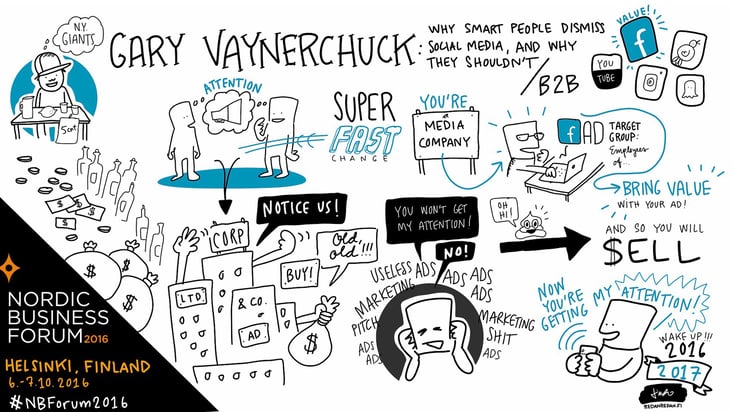 N.Y.
GIANTS
GARY VAYNERCHUCK:
WHY SMART PEOPLE DISMISS
SOCIAL MEDIA, AND WHY
THEY SHOULDN'T
/B2B
VALUE!
f
YOU
TUBE
ATTENTION
SUPER
FAST
CHANGE
YOU'RE
a
MEDIA
COMPANY
f AD
TARGET
GROUP:
Employees
of
BRING VALUE
WITH YOUR AD!
AND SO YOU WILL
$ELL
NOTICE US!
CORP
Old,
old...!!!
BUY!
LTD.
& CO.
AD.
$
YOU WON'T GET
MY ATTENTION!
NO!
OH
HI!
USELESS ADS ADS ADS
MARKETING
PITCH
ADS
ADS
ADS
MARKETING
SHIT
ADS
NOW
YOU'RE
GETTING
MY ATTENTION!
WAKE UP!!!
2016
2017
NORDIC
BUSINESS
FORUM 2016
HELSINKI, FINLAND
6.-7.10.2016
#NBForum2016